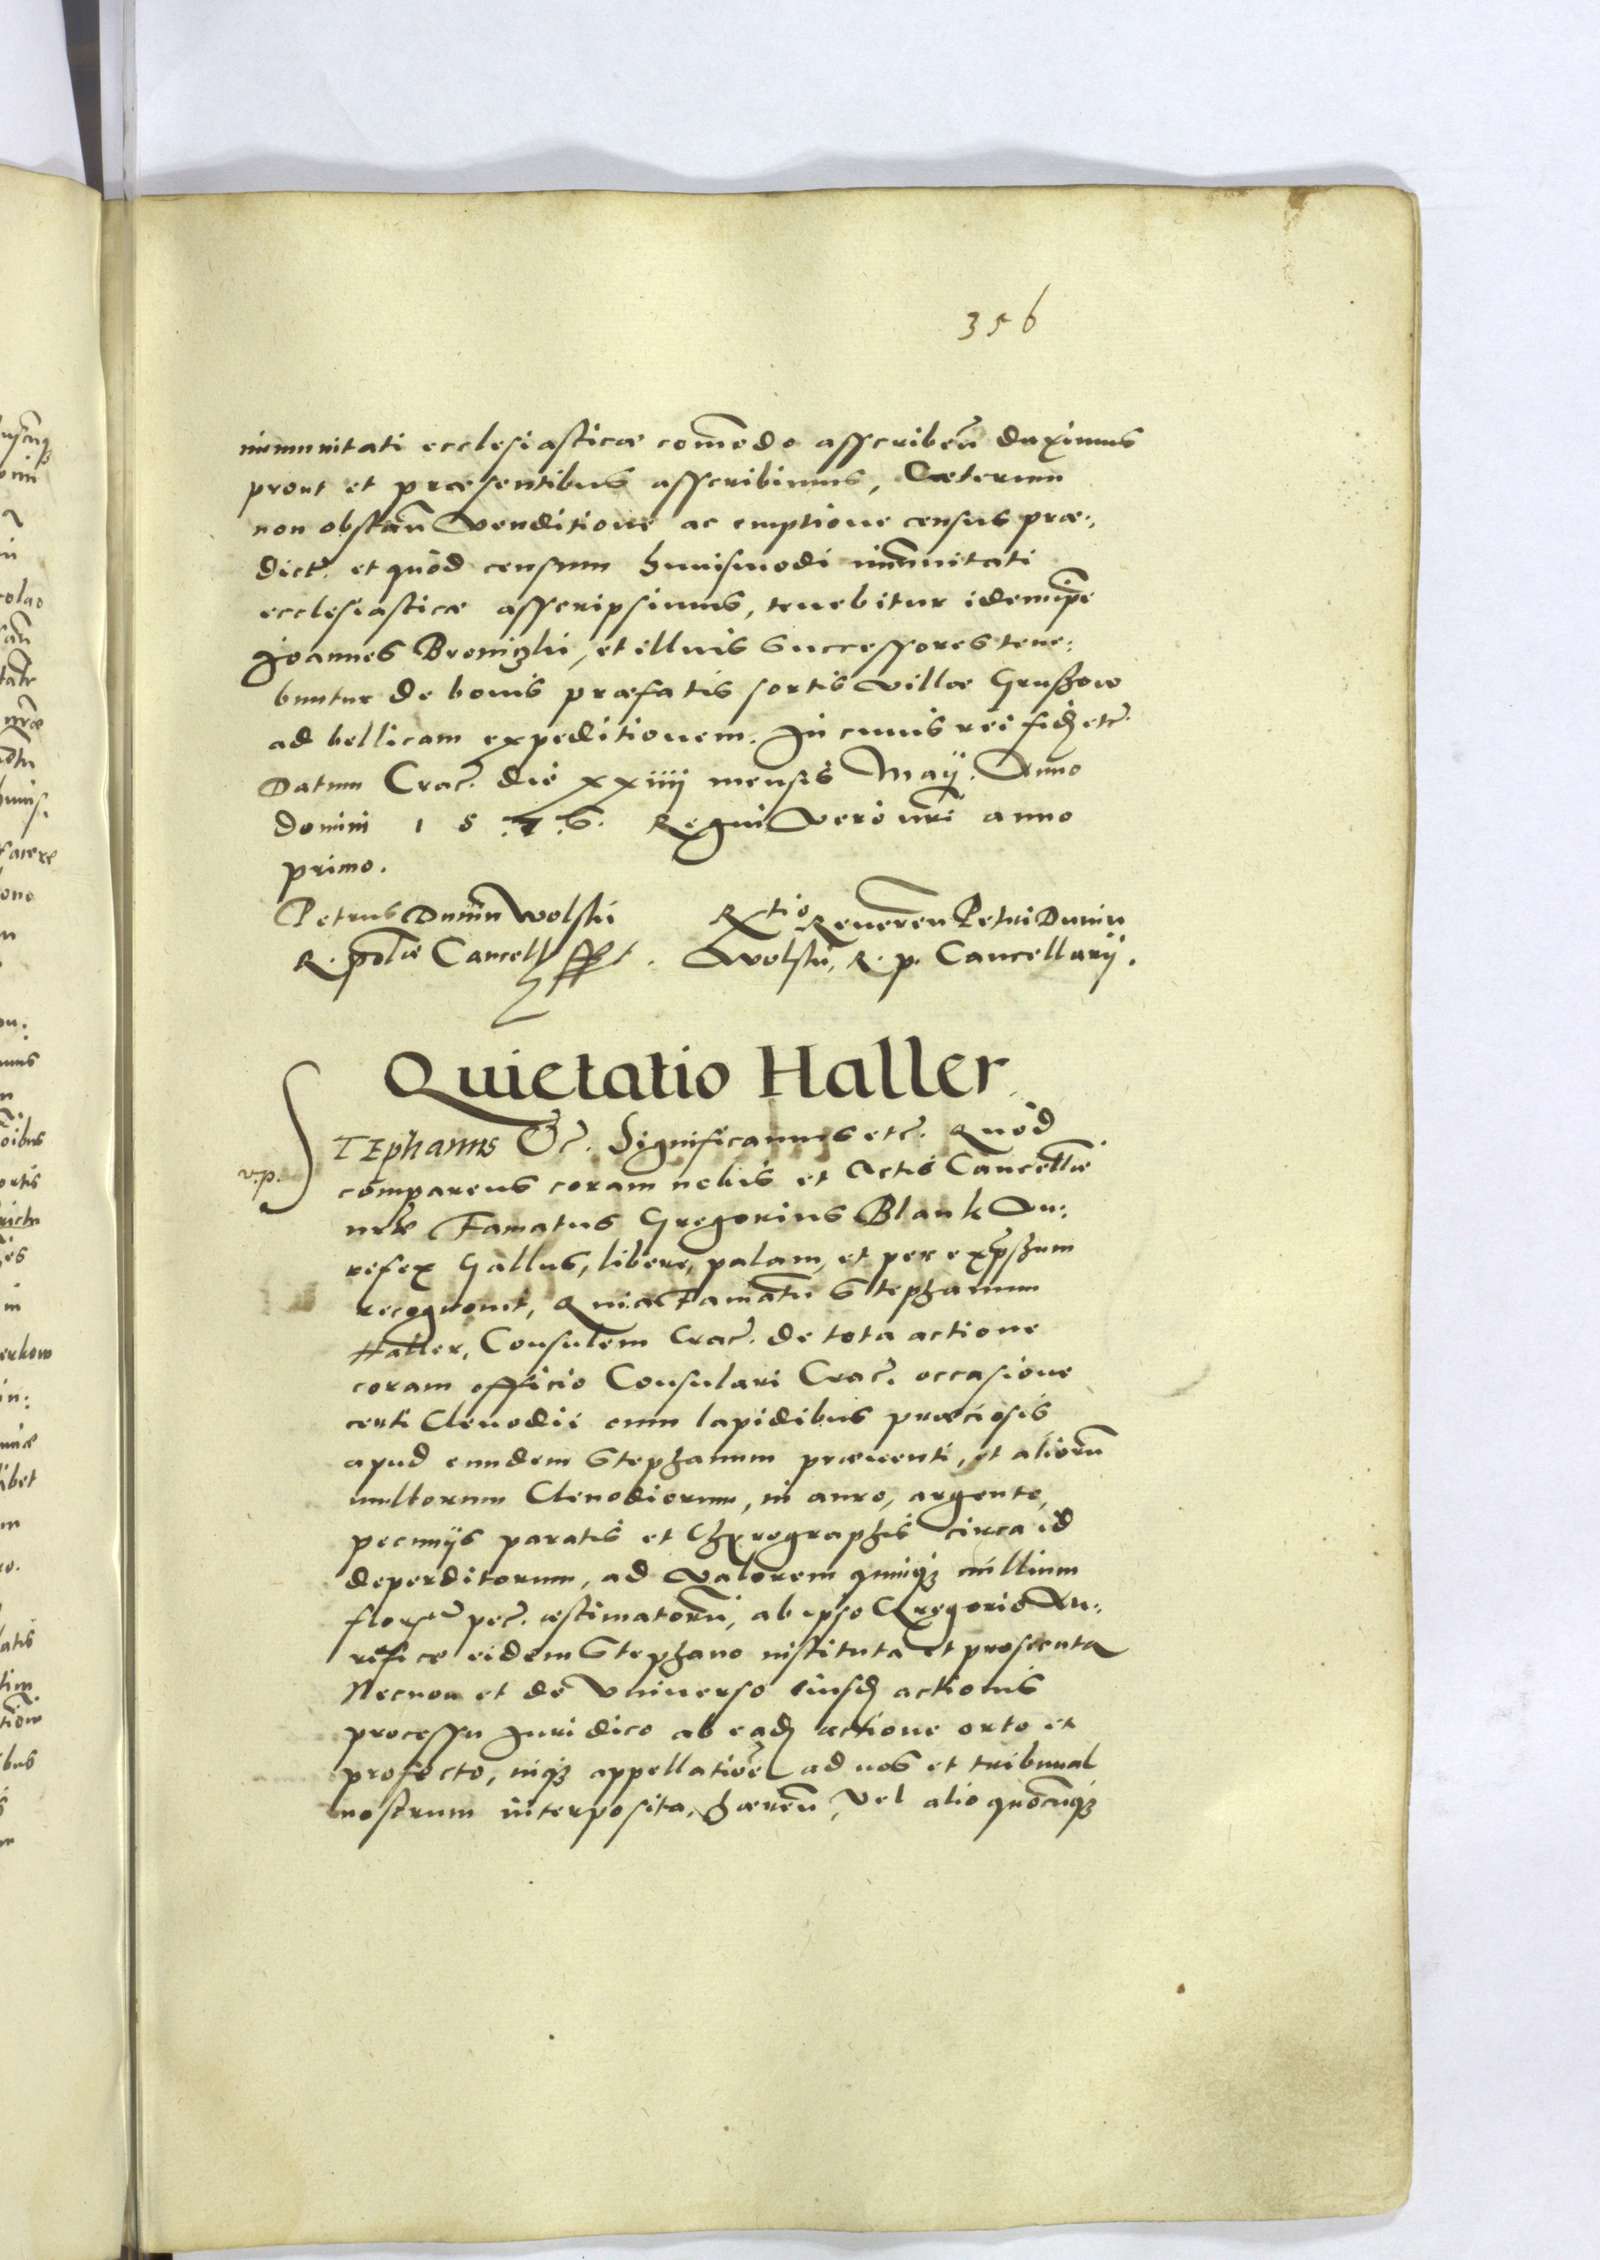 356
immunitati ecclesiasticæ com̄odo asscribeñ duximus
prout et præsentibus asscribimus, Cæterum
non obstañ venditione ac emptione census præ:
dict. et quòd censum huiusmodi im̄unitati
ecclesiasticæ asscripsimus, tenebitur idem
Joannes Broniszki, et illius successores tene:
buntur de bonis præfatis sortis villæ Gruszow
ad bellicam expeditionem. In cuius rei fid etc.
Datum Crac. die xxiiii mensis Maij. Anno
domini 1 5 7 6. Regni vero nri anno
primo.
Petrus Dunin Wolski
R. Poloæ Cancell sspt.
Rtio Reueren Petri Dunin
Wolski, R. p. Cancellarij.
Quietatio Haller
v.p.
STEphanus &c. Significamus etc. Quòd
comparens coram nobis et Actis Cancellariæ
nræ Famatus Gregorius Blank Au:
rifex Gallus, libere, palam, et per expssum
recognouit, Quia Famatu Stephanum
Haller, Consulem Crac. de tota actione
coram officio Consulari Crac. occasione
certi Clenodii cum lapidibus præciosis
apud eundem Stephanum præuenti, et aliorū
multorum Clenodiorum, in auro, argento,
pecunijs paratis et Chyrographis circa id
deperditorum, ad valorem quinqꝫ millium
flor pec. æstimatorū, ab ipso Gregorio Au:
rifice eidem Stephano instituta et prosecuta
Necnon et de vniuerso eiusd actionis
processu Juridico ab ead actione orto et
profecto, inqꝫ appellatioē ad nos et tribunal
nostrum interposita, hæreñ, vel alio quocūqꝫ